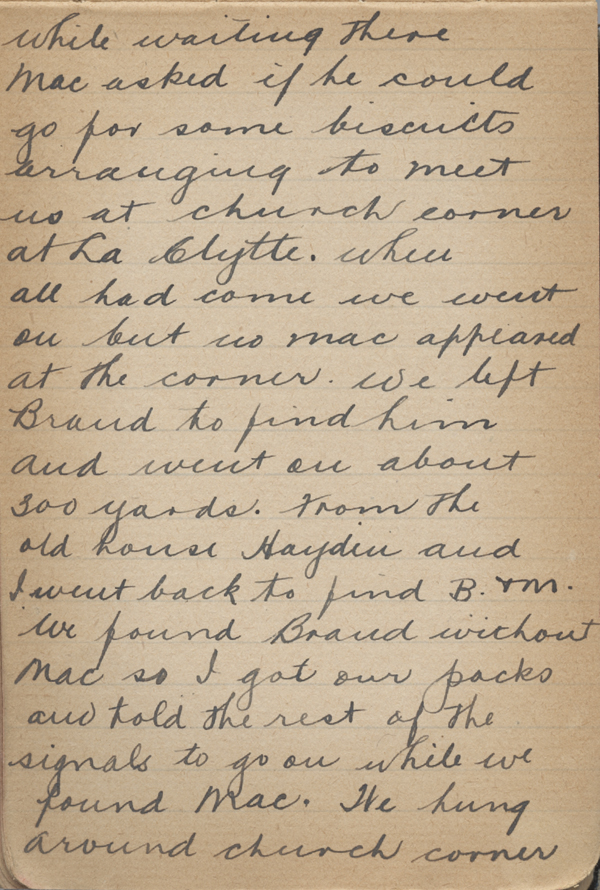 while waiting there
Mac asked if he could
go for some biscuits
arranging to meet
us at church corner
at La Clytte. when
all had come we went
on but no mac appeared
at the corner. We left
Brand to find him
and went on about
300 yards. From the
old house Hayden and
I went back to find B. & M.
We found Brand without
Mac so I got our packs
and told the rest of the
signals to go on while we
found Mac. We hung
around church corner